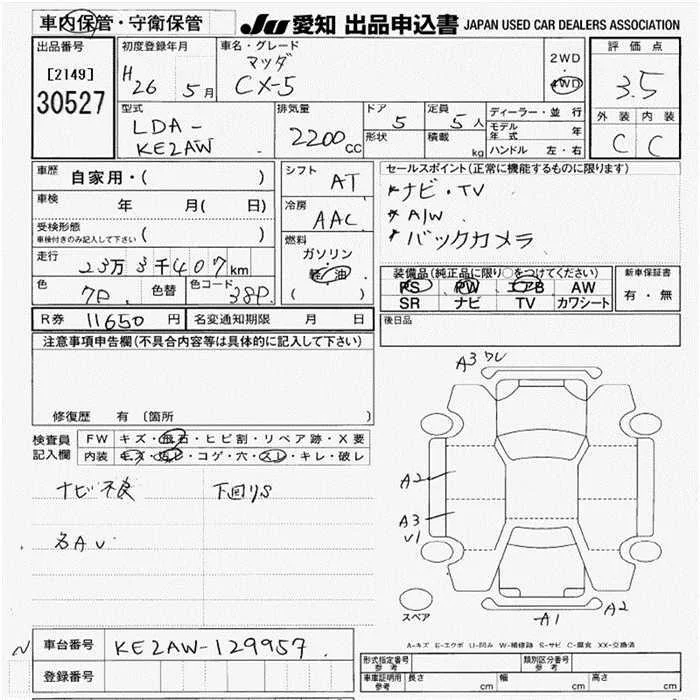 車内保管・守衛保管
JU 愛知 出品申込書 JAPAN USED CAR DEALERS ASSOCIATION
出品番号
[2149]
30527
初度登録年月
H26 5月
車名・グレード
マツダ
CX-5
2WD
・
4WD
評価点
3.5
外装 内装
C C
型式
LDA-
KE2AW
排気量
2200cc
ドア 5
形状
定員 5人
積載 kg
ディーラー・並行
モデル年式 年
ハンドル 左・右
車歴 自家用・( )
車検 年 月( 日)
受検形態
車検付きのみ記入して下さい ( )
走行 23万3千407km
色 7P 色替 色コード 38P
シフト AT
冷房 AAC
燃料
ガソリン
・
軽油
( )
セールスポイント(正常に機能するものに限ります)
ナビ・TV
A/W
バックカメラ
装備品(純正品に限り○をつけてください)
PS PW エアB AW
SR ナビ TV カワシート
新車保証書
有・無
R券 11650円 名変通知期限 月 日
後日品
注意事項申告欄(不具合内容等は具体的に記入して下さい)
修復歴 有〔箇所 〕
検査員記入欄
FW キズ・飛石・ヒビ割・リペア跡・X要
内装 キズ・汚レ・コゲ・穴・スレ・キレ・破レ
ナビ不良 下回りS
各AU
A3 ワレ
A2
A3
V1
A1
A2
スペア
A-キズ E-エクボ U-凹み W-補修跡 S-サビ C-腐食 XX-交換済
車台番号 KE2AW-129957
登録番号
形式指定番号 参考
類別区分番号 参考
車庫証明用 参考 長さ cm 幅 cm 高さ cm